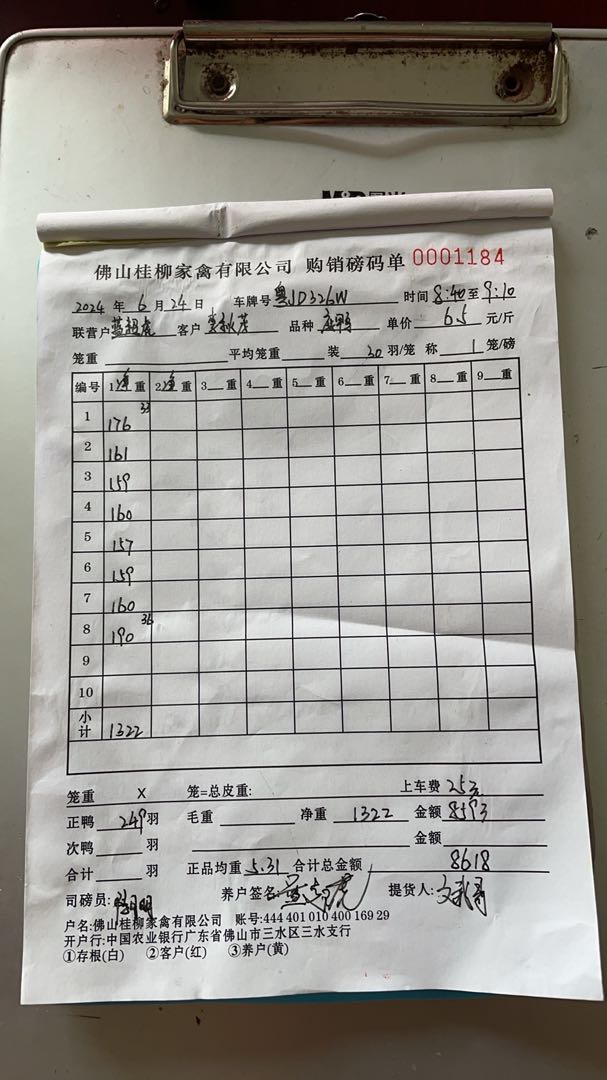 佛山桂柳家禽有限公司 购销磅码单 0001184
2024 年 6 月 24 日 车牌号 粤JD326W 时间 8:40 至 9:10
联营户 蓝超虎 客户 品种 单价 6.5 元/斤
笼重 平均笼重 装 30 羽/笼 称 1 笼/磅
编号 1 净 重 2 净 重 3 重 4 重 5 重 6 重 7 重 8 重 9 重
1 176 33
2 161
3 159
4 160
5 157
6 159
7 160
8 190 36
9
10
小计 1322
笼重 X 笼=总皮重: 上车费 25元
正鸭 249 羽 毛重 净重 1322 金额 8593
次鸭 羽 金额
合计 羽 正品均重 5.31 合计总金额 8618
司磅员: 养户签名 蓝超虎 提货人:
户名:佛山桂柳家禽有限公司 账号:444 401 010 400 169 29
开户行:中国农业银行广东省佛山市三水区三水支行
①存根(白) ②客户(红) ③养户(黄)